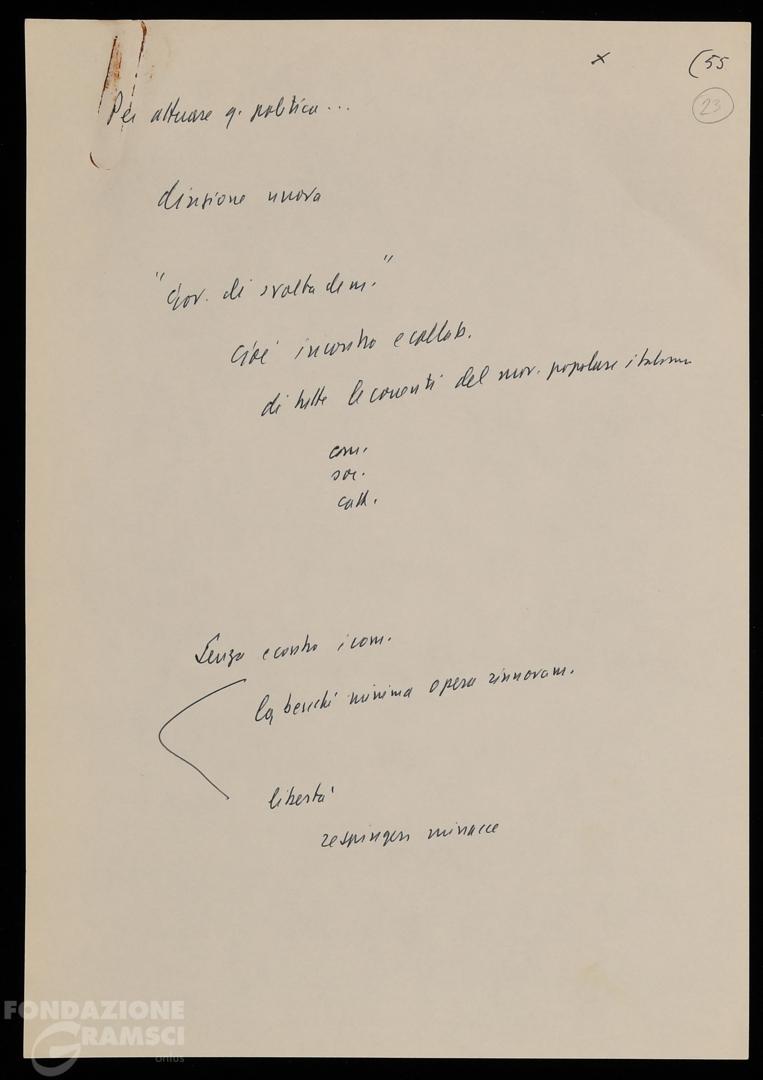 x (55
23
Per attuare q. politica...
direzione nuova
"Gov. di svolta dem."
cioè incontro e collab.
di tutte le correnti del mov. popolare italiano
com.
soc.
catt.
Senza e contro i com.
benché minima opera rinnovam.
libertà
respingere minacce
FONDAZIONE
GRAMSCI
onlus